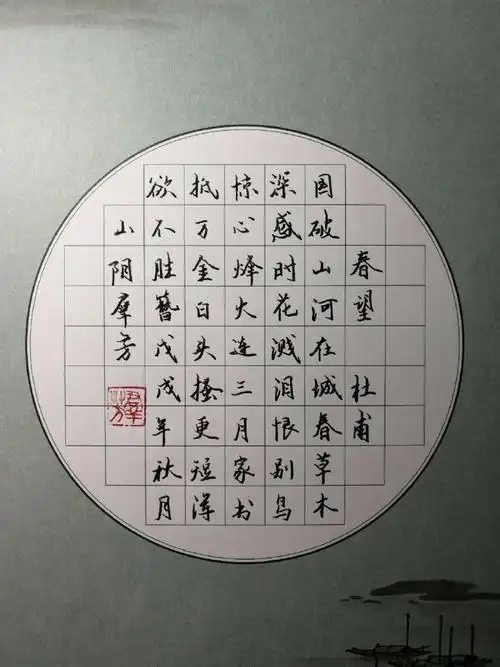 春望 杜甫
国破山河在城春草木
深感时花溅泪恨别鸟
惊心烽火连三月家书
抵万金白头搔更短浑
欲不胜簪戊戌年秋月
山阴羣芳